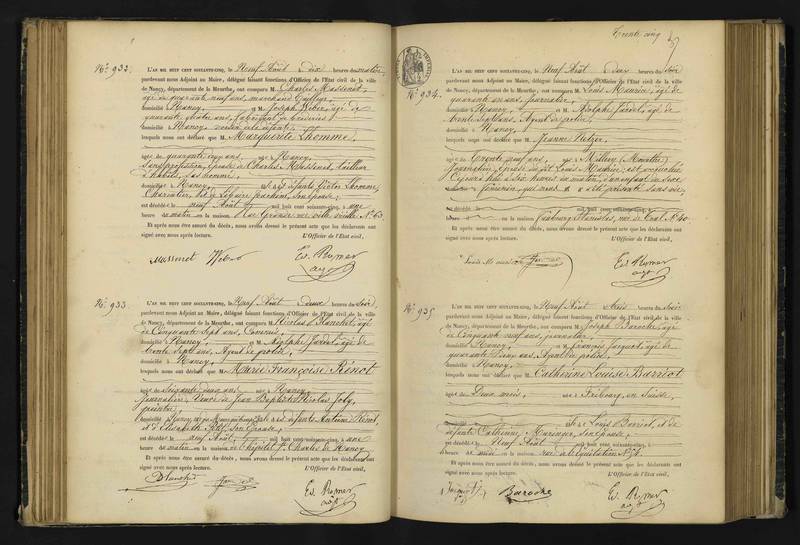 Nº 932.
L'AN MIL HUIT CENT SOIXANTE-CINQ, le Neuf Août Dix heures du matin
pardevant nous Adjoint au Maire, délégué faisant fonctions d'Officier de l'Etat civil de la ville
de Nancy, département de la Meurthe, ont comparu M. Charles Massenot,
âgé de quarante neuf ans, marchand tailleur
domicilié à Nancy, et M. Joseph Weber, âgé de
quarante quatre ans, fabricant de broderies
domicilié à Nancy
lesquels nous ont déclaré que M. Marguerite Lhomme,
âgée de quarante cinq ans née à Nancy,
sans profession, épouse de Charles Massenot, tailleur
d'habits,
domiciliée à Nancy, défunts Victor Lhomme,
Charretier, son épouse;
est décédée le neuf Août mil huit cent soixante-cinq, à une
heure du matin en la maison Grande rue ville vieille Nº 63.
Et après nous être assuré du décès, nous avons dressé le présent acte que les déclarants ont
signé avec nous après lecture. L'Officier de l'Etat civil,
Massenot Weber Ed. Rymer
adjt
Nº 933
L'AN MIL HUIT CENT SOIXANTE-CINQ, le Neuf Août Deux heures du soir
pardevant nous Adjoint au Maire, délégué faisant fonctions d'Officier de l'Etat civil de la ville
de Nancy, département de la Meurthe, ont comparu M. Nicolas Blanchet, âgé
de Cinquante sept ans, Commis,
domicilié à Nancy, et M. Adolphe Jardel, âgé de
trente sept ans, Agent de police,
domicilié à Nancy,
lesquels nous ont déclaré que M. Marie Françoise Rénot
âgée de soixante deux ans née à Nancy,
journalière, Veuve de Jean Baptiste Nicolas Joly,
peintre;
domiciliée Nancy, défunts Antoine Rénot
et Elisabeth son épouse;
est décédée le neuf Août, mil huit cent soixante-cinq, à une
heure du matin en la maison de l'hôpital St Charles de Nancy
Et après nous être assuré du décès, nous avons dressé le présent acte que les déclarants ont
signé avec nous après lecture. L'Officier de l'Etat civil,
Blanchet Ed. Rymer
adjt
Trente cinq
Nº 934.
L'AN MIL HUIT CENT SOIXANTE-CINQ, le Neuf Août Deux heures du soir
pardevant nous Adjoint au Maire, délégué faisant fonctions d'Officier de l'Etat civil de la ville
de Nancy, département de la Meurthe, ont comparu M. Louis Maurice, âgé de
quarante un ans, journalier,
domicilié à Nancy, et M. Adolphe Jardel, âgé de
trente sept ans, Agent de police,
domicilié à Nancy,
lesquels nous ont déclaré que M. Jeanne Netzer,
âgée de Trente neuf ans, née à Millery (Meurthe)
journalière, épouse du dit Louis Maurice; est accouchée
Cejourd'hui à dix heures du matin, d'un enfant du sexe
féminin, qui nous a été présenté sans vie,
est décédé le mil huit cent soixante-cinq, à
heure en la maison faubourg Stanislas, rue de Toul Nº 40.
Et après nous être assuré du décès, nous avons dressé le présent acte que les déclarants ont
signé avec nous après lecture. L'Officier de l'Etat civil,
Louis Maurice Ed. Rymer
adjt
Nº 935
L'AN MIL HUIT CENT SOIXANTE-CINQ, le Neuf Août trois heures du soir
pardevant nous Adjoint au Maire, délégué faisant fonctions d'Officier de l'Etat civil de la ville
de Nancy, département de la Meurthe, ont comparu M. Joseph Baroche, âgé
de Cinquante neuf ans, journalier,
domicilié à Nancy, et M. François Jacquot, âgé de
quarante cinq ans, Agent de police,
domicilié à Nancy,
lesquels nous ont déclaré que M. Catherine Louise Barriot
âgée de Deux mois, née à Fribourg, en Suisse,
fille de Louis Barriot, et de
défunte Catherine Maringer, son épouse;
est décédée le Neuf Août mil huit cent soixante-cinq, à
heure de midi en la maison rue de l'Equitation Nº 56.
Et après nous être assuré du décès, nous avons dressé le présent acte que les déclarants ont
signé avec nous après lecture. L'Officier de l'Etat civil,
Baroche Ed. Rymer
adjt